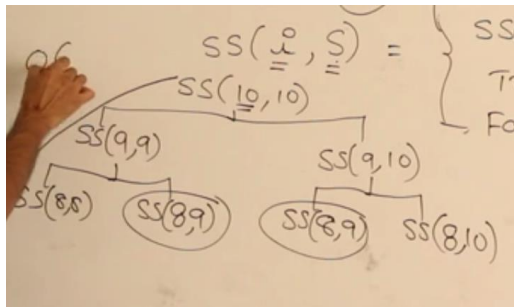 SS(i, S) =
SS
SS(10, 10)
SS(9,9) SS(9,10)
SS(8,8) SS(8,9) SS(8,9) SS(8,10)